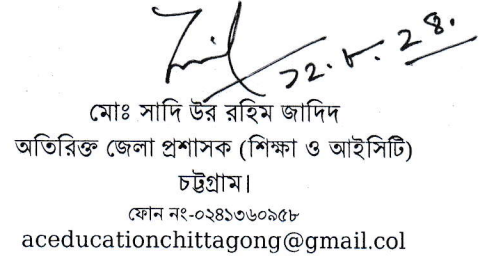 ১২.৮.২৪.
মোঃ সাদি উর রহিম জাদিদ
অতিরিক্ত জেলা প্রশাসক (শিক্ষা ও আইসিটি)
চট্টগ্রাম।
ফোন নং-০২৪১৩৬০৯৫৮
aceducationchittagong@gmail.col